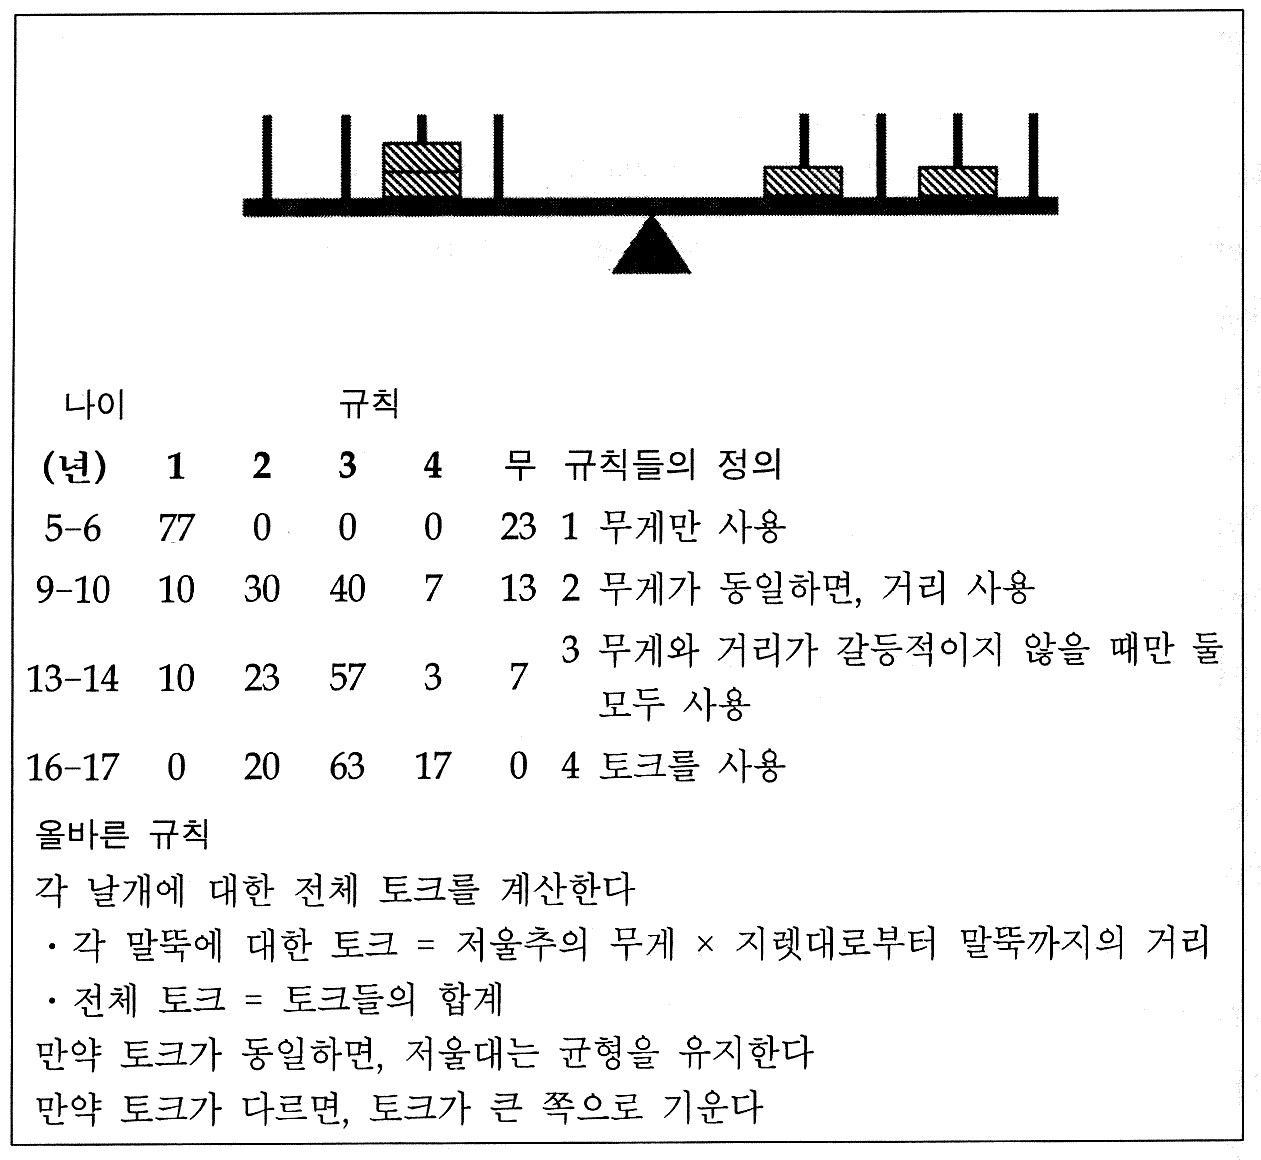 나이 규칙
(년) 1 2 3 4 무 규칙들의 정의
5–6 77 0 0 0 23 1 무게만 사용
9–10 10 30 40 7 13 2 무게가 동일하면, 거리 사용
13–14 10 23 57 3 7 3 무게와 거리가 갈등적이지 않을 때만 둘
모두 사용
16–17 0 20 63 17 0 4 토크를 사용
올바른 규칙
각 날개에 대한 전체 토크를 계산한다
· 각 말뚝에 대한 토크 = 저울추의 무게 × 지렛대로부터 말뚝까지의 거리
· 전체 토크 = 토크들의 합계
만약 토크가 동일하면, 저울대는 균형을 유지한다
만약 토크가 다르면, 토크가 큰 쪽으로 기운다